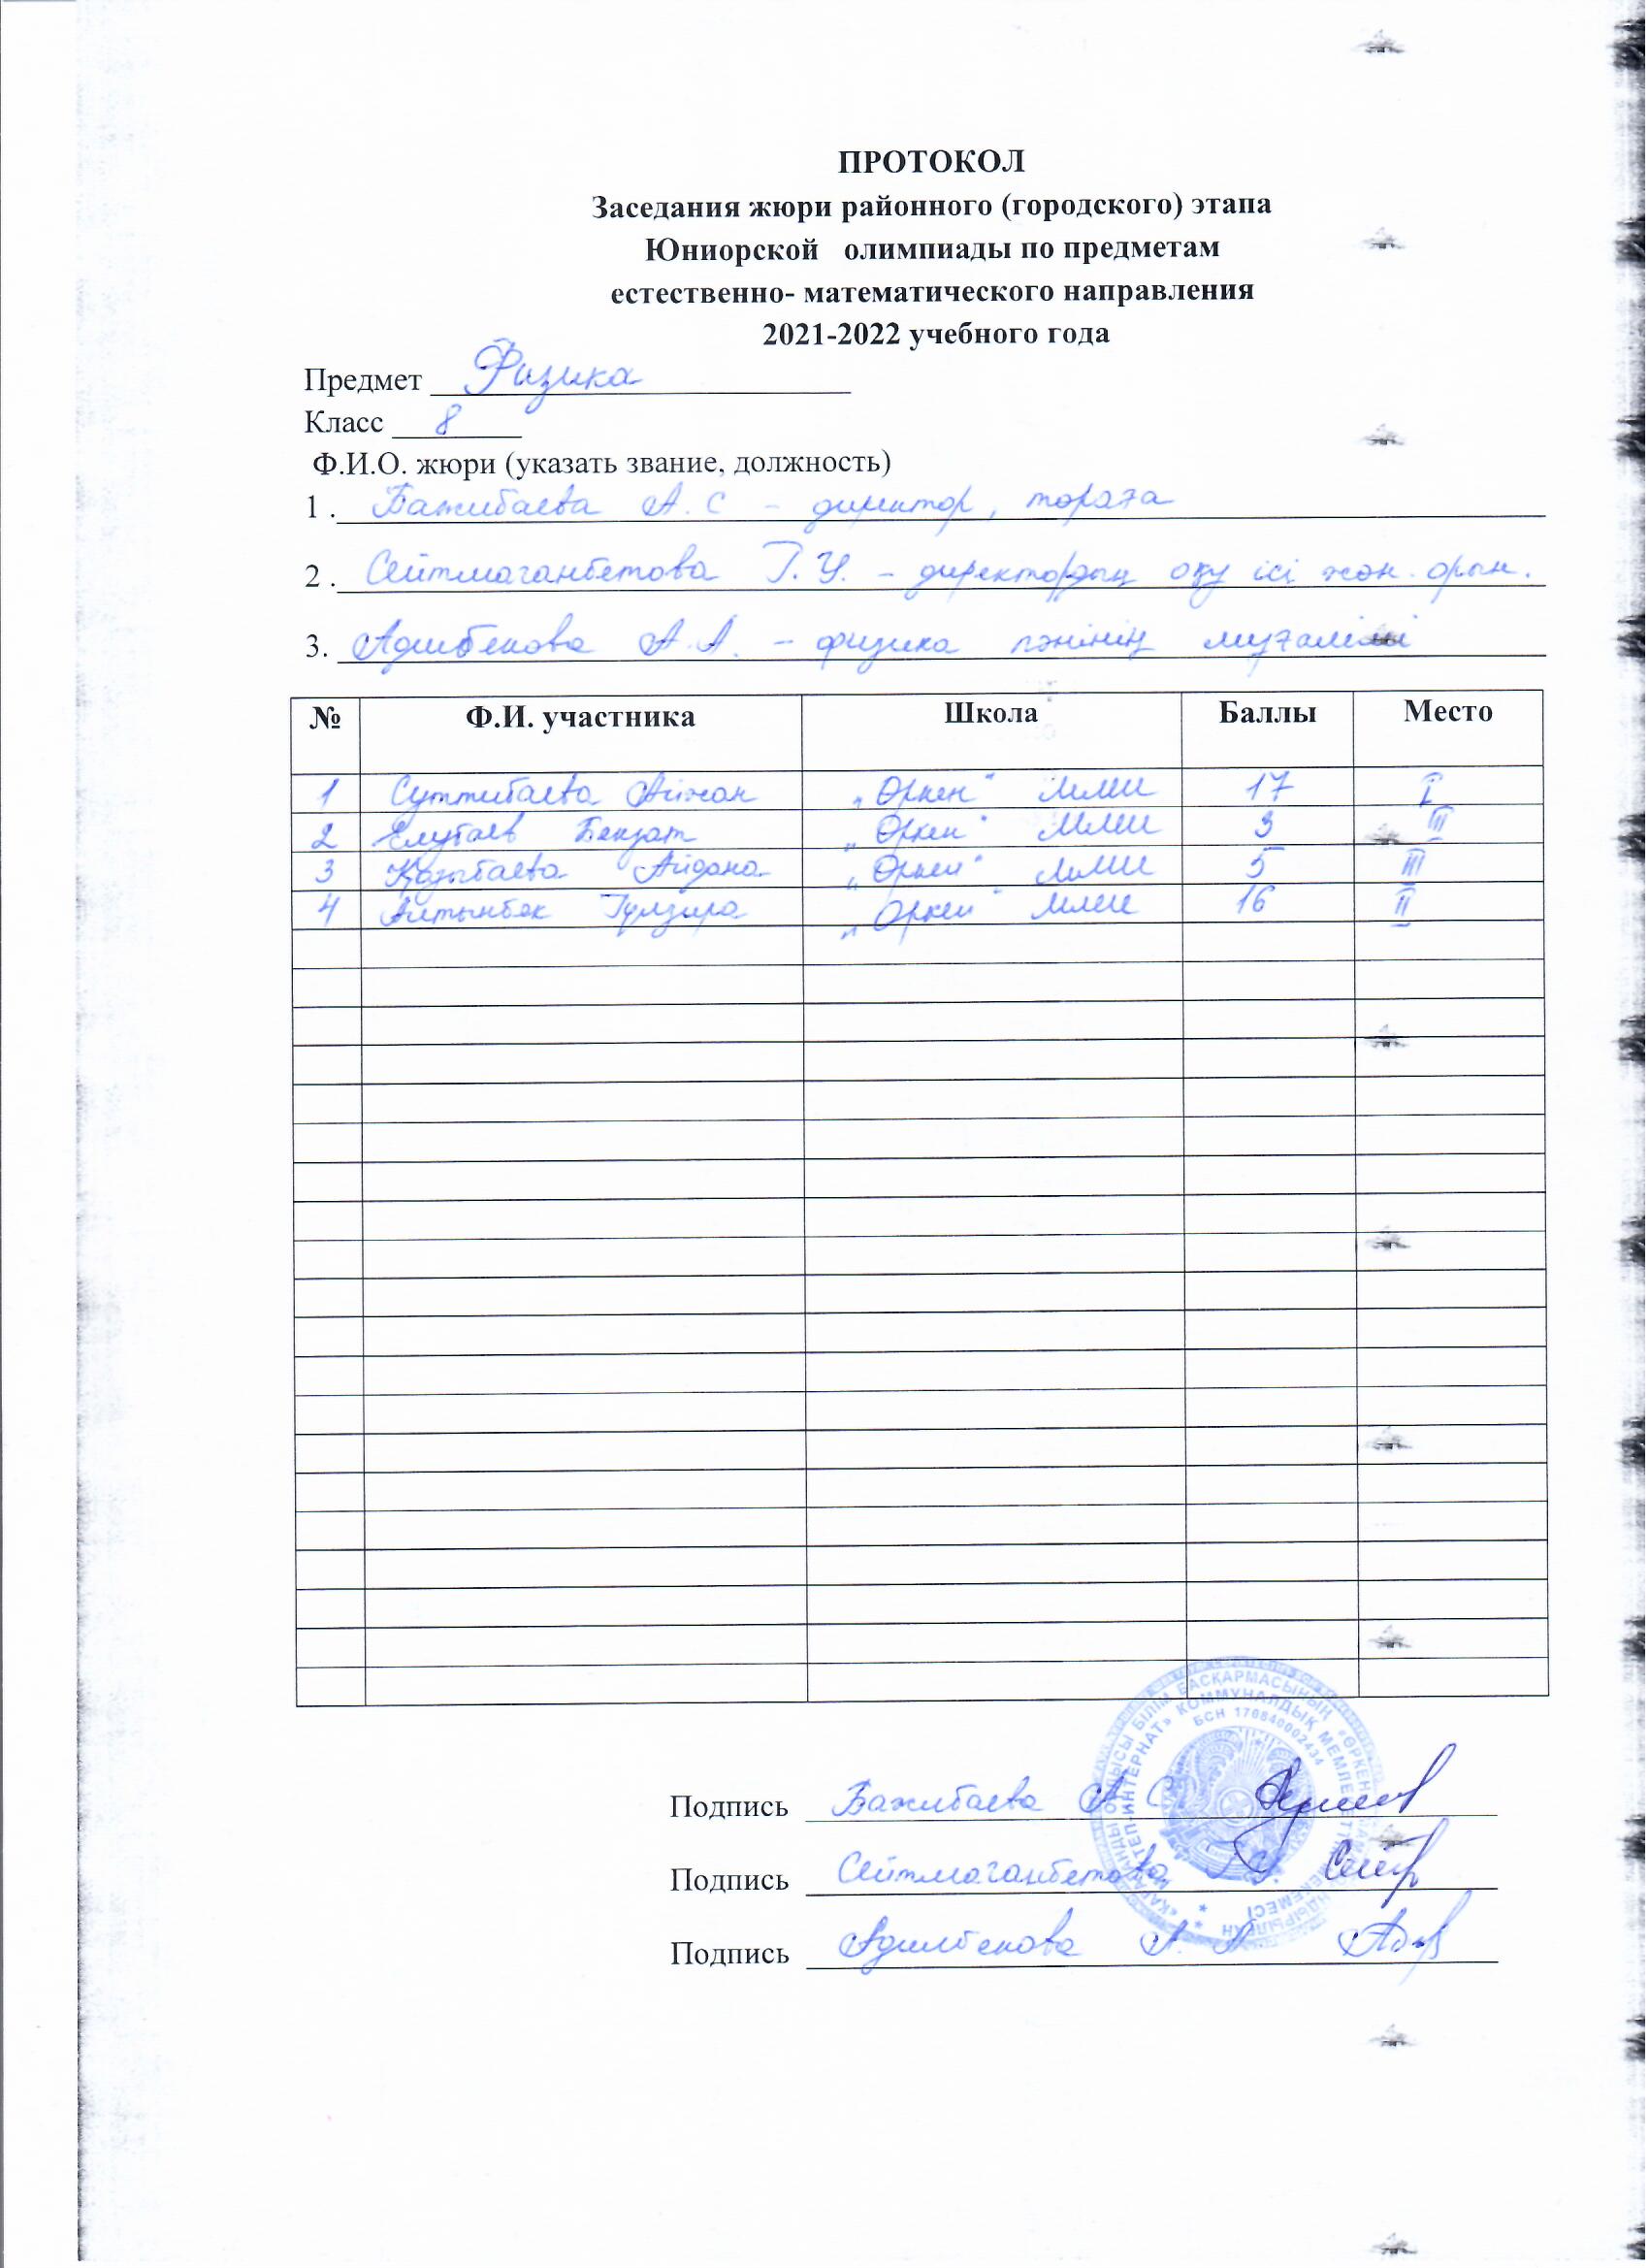 ПРОТОКОЛ
Заседания жюри районного (городского) этапа
Юниорской олимпиады по предметам
естественно- математического направления
2021-2022 учебного года
Предмет Физика
Класс 8
Ф.И.О. жюри (указать звание, должность)
1 . Бажибаева А. С - директор, төраға
2 . Сейтмаганбетова Г. У. - директордың оқу ісі жөн. орын.
3. Адилбекова А. А. - физика пәнінің мұғалімі
№ Ф.И. участника Школа Баллы Место
1 Суттибаева Айжан „Өркен" ММИ 17 I
2 Елубаев Бекзат „Өркен" ММИ 3 III
3 Казыбаева Айдана „Өркен" ММИ 5 III
4 Алтынбек Гулзира „Өркен" ММИ 16 II
Подпись Бажибаева А С
Подпись Сейтмаганбетова Г У.
Подпись Адилбекова А. А
БСН 170840002434